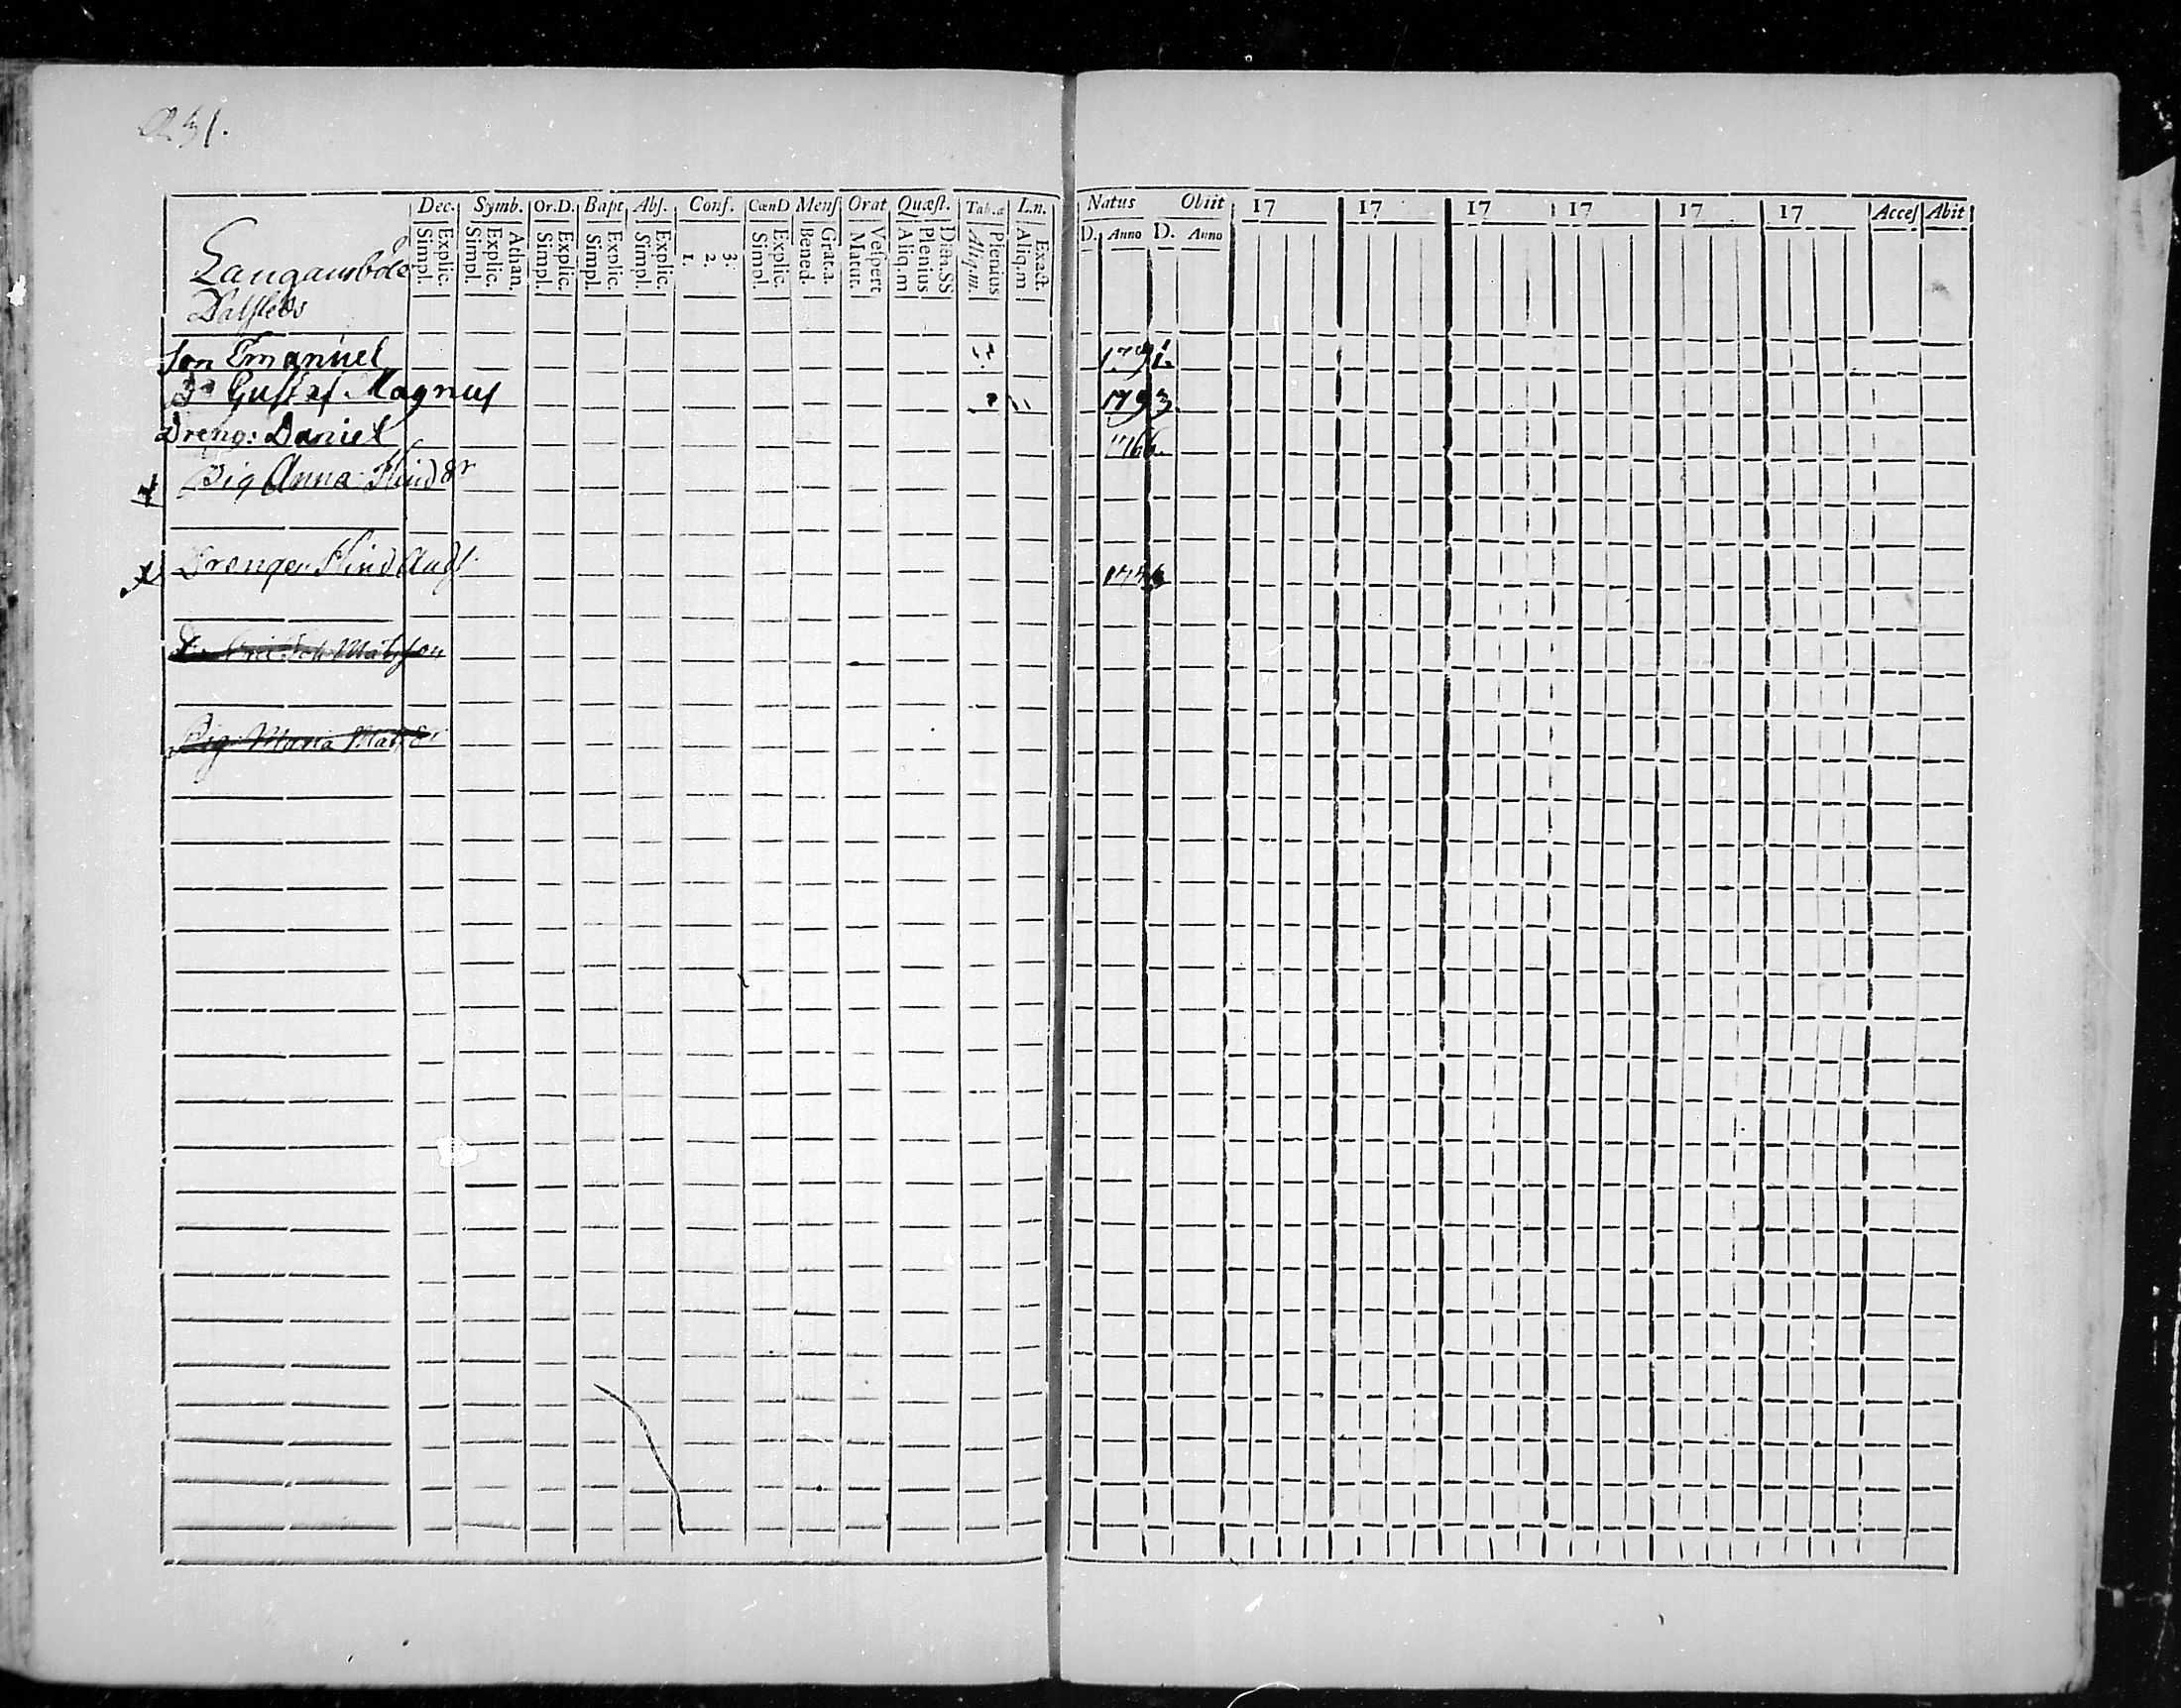 231.
Dec. Symb. Or.D. Bapt Abs. Conf. CœnD Mens Orat Quæst. Tab.æ L.n. Natus Obiit 17 17 17 17 17 17 Acces Abit
Explic. Simpl. Athan. Explic. Simpl. Explic. Simpl. Explic. Simpl. Explic. Simpl. 3. 2. 1. Explic. Simpl. Grat.a. Bened. Vespert Matut. Plenius Aliq.m Plenius Aliq.m. Exact. Aliq.m D. Anno D. Anno
Langansböle
Son Emanuel 1791.
Do Gustaf Magnus 1793.
Dreng: Daniel 1766.
Pig Anna
Drengen
Matsson
Pig: Maria Mats